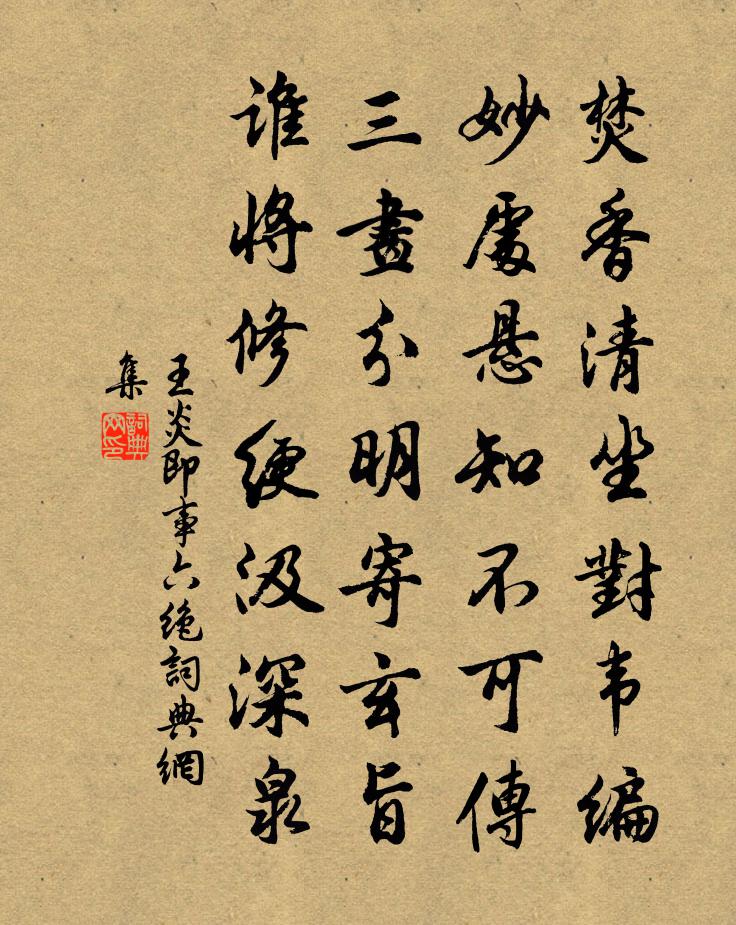 焚香清坐對韦编
妙處悬知不可傳
三畫分明寄玄旨
誰將修绠汲深泉
王炎即事六绝詞典網
集
詞典網印